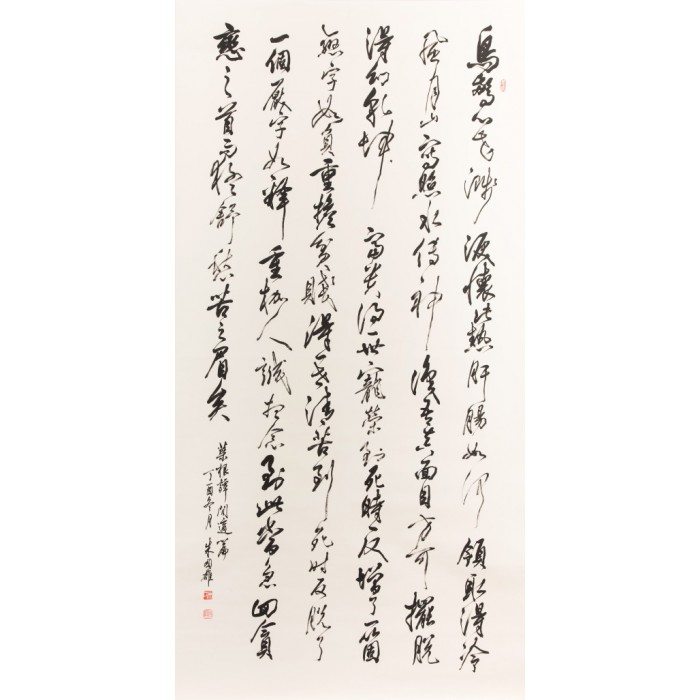 鳥驚心花濺淚懷此熱肝腸如何領取得冷
風月山寫照水傳神識吾真面目方可擺脫
得幻乾坤 富貴得一世寵榮到死時反增了一箇
戀字如負重擔貧賤得一世清苦到死時反脫了
一個厭字如釋重枷人誠想念到此當急回貪
戀之首而猛舒愁苦之眉矣
菜根譚閒適篇
丁酉冬月 朱國雄